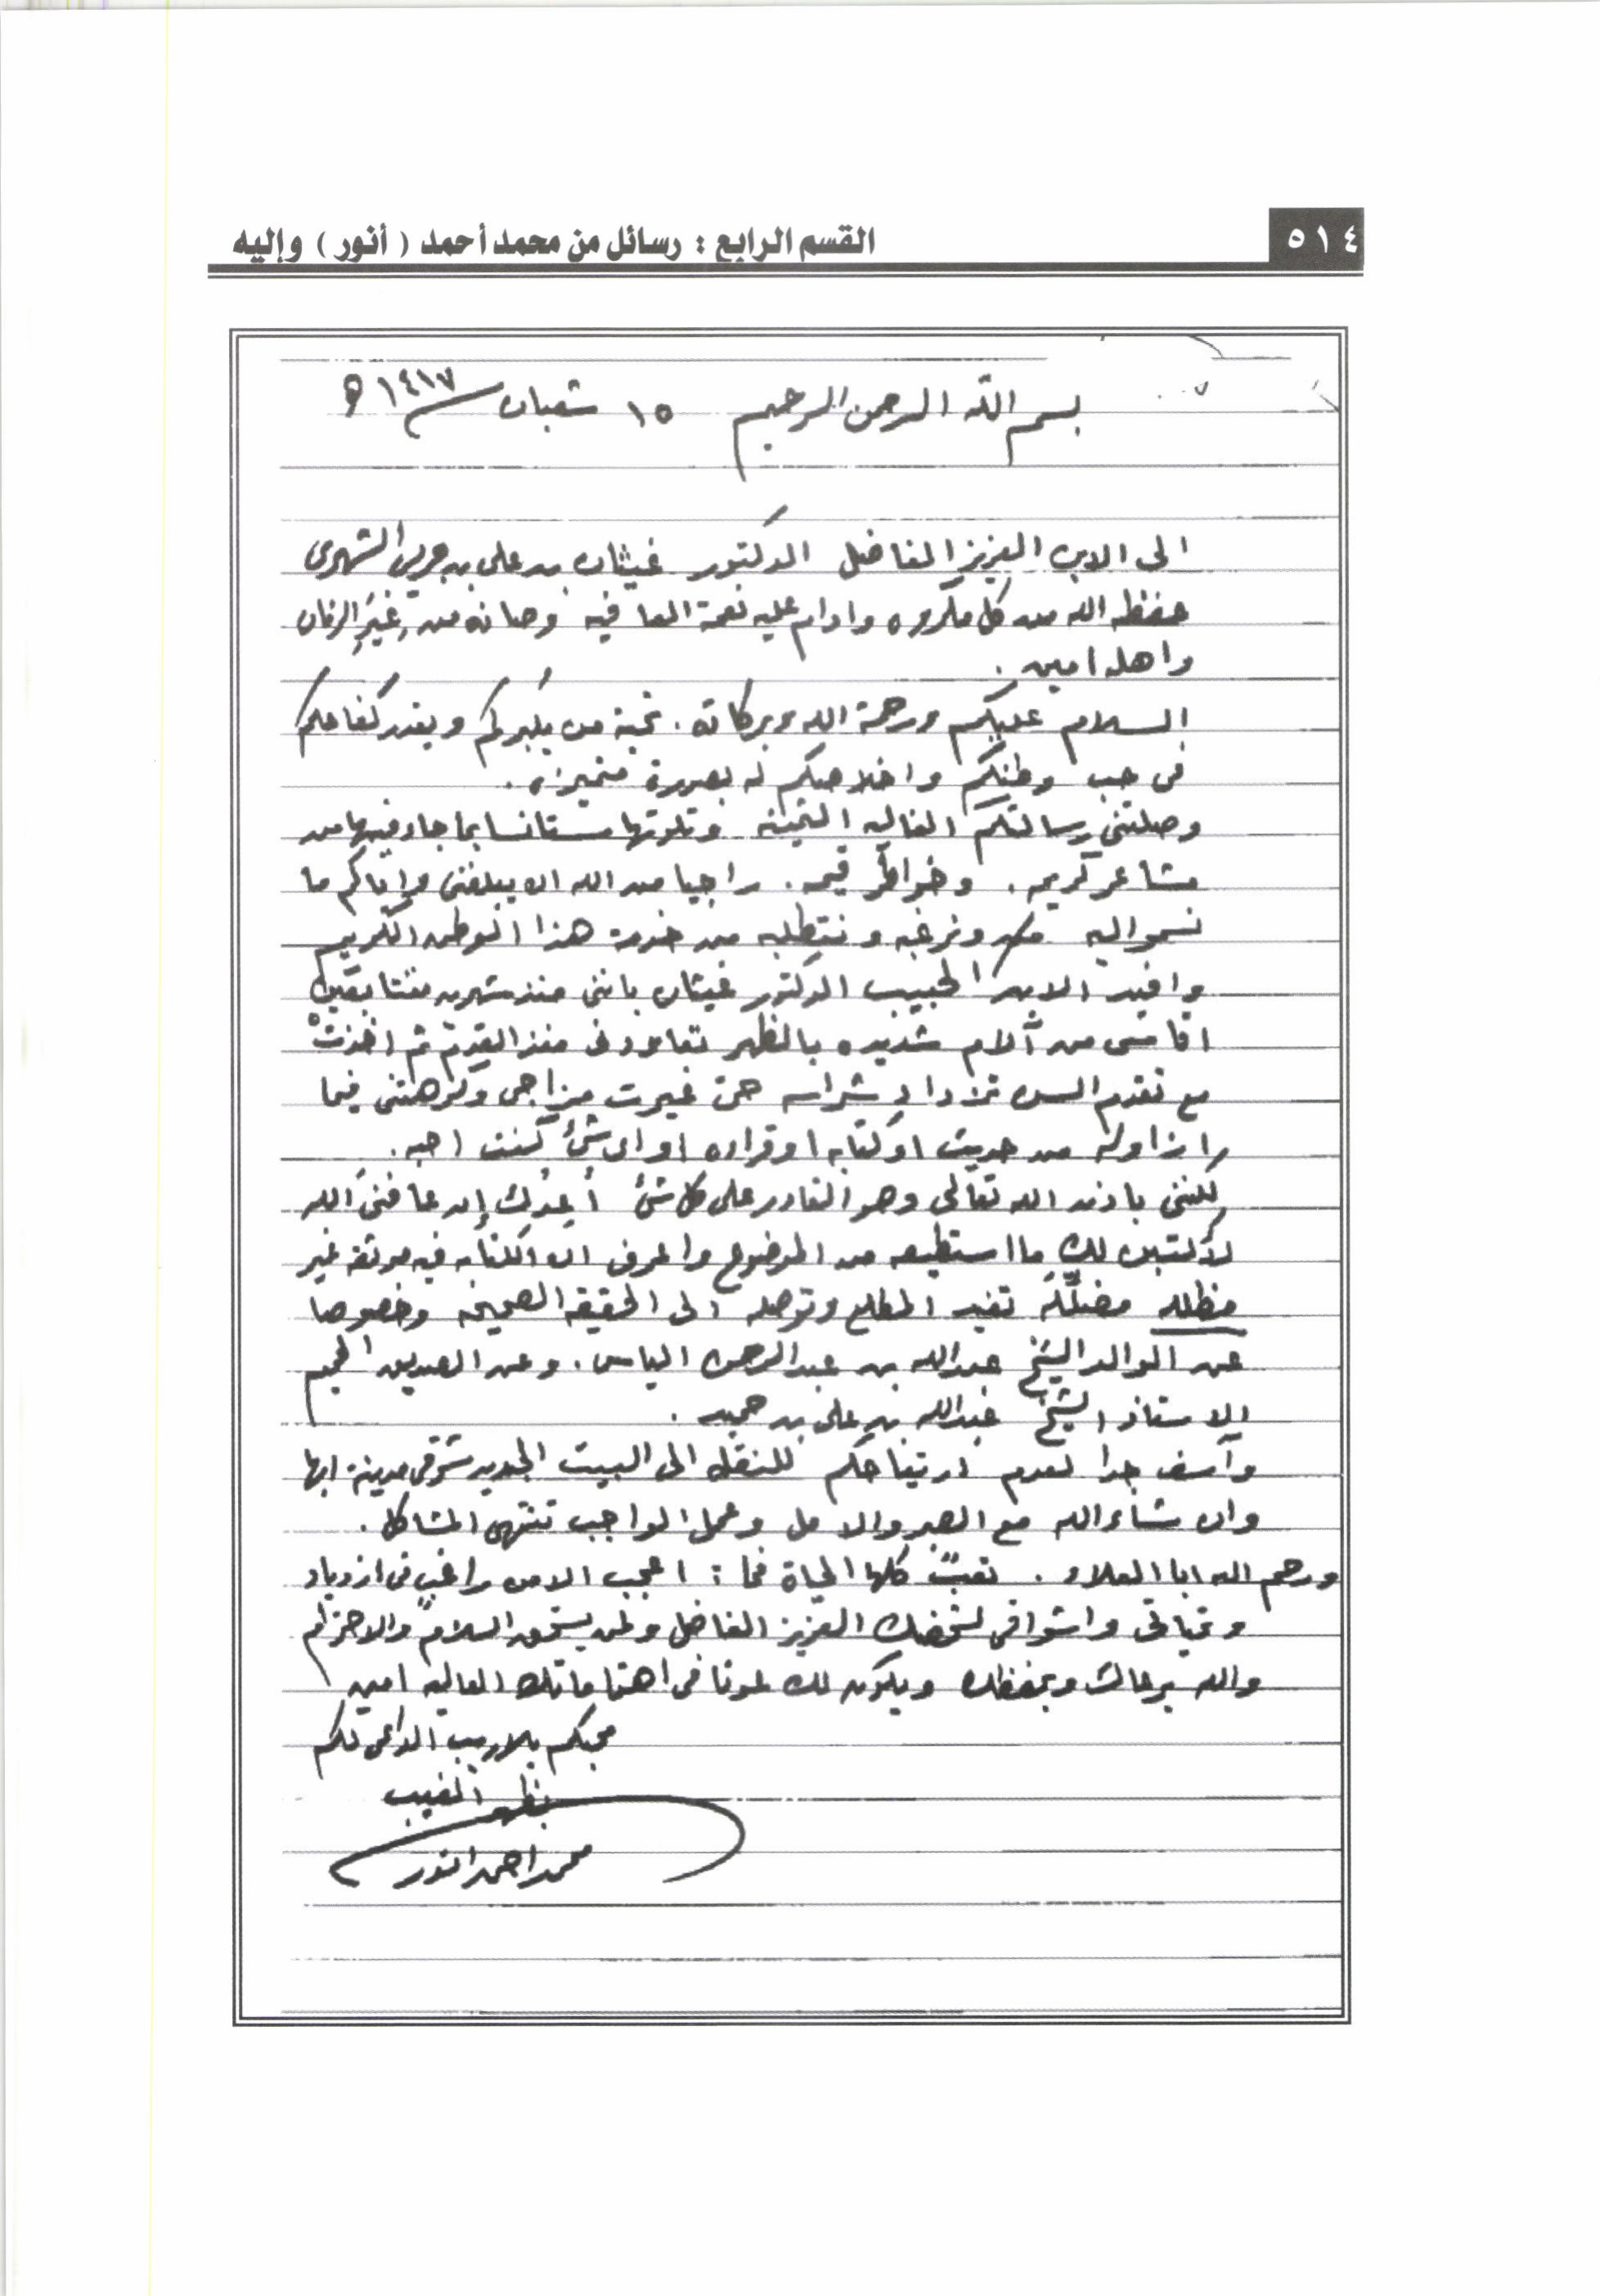 ٥١٤
القسم الرابع : رسائل من محمد أحمد ( أنور ) وإليه
بسم الله الرحمن الرحيم ١٥ شعبان ١٤١٧ ه
الى الابن العزيز الفاضل الدكتور غيثان بن على بن جريس الشهرى
حفظه الله من كل مكروه وادام عليه نعمة العافيه وصانه من غِيَرِ الزمان
واهله امين .
السلام عليكم ورحمة الله وبركاته . تحية من يُكبركم ويقدر كفاحكم
فى حب وطنكم واخلاصكم له بصورة متميزه .
وصلتنى رسالتكم الغاليه الثمينه وتلوتها مستانسا بما جاء فيها من
مشاعر كريمه . وخواطر قيمه . راجيا من الله ان يبلغنى واياكم ما
نسمو اليه ونرغبه ونتطلبه من خدمة هذا الوطن الكريم
وافيد الابن الحبيب الدكتور غيثان باننى منذ شهرين متتابعين
اقاسى من آلام شديده بالظهر تعاودنى منذ القدم ثم اخذتْ
مع تقدم السن تزداد شراسه حتى غيرت مزاجى وكرهتنى فيما
ازاوله من حديث او كتابه او قراءه او اى شئ كنت احبه .
لكننى باذن الله تعالى وهو القادر على كل شئ أعِدُك إن عافنى الله
لأكتبن لك ما استطيعه من الموضوع واعرف ان الكتابه فيه موثقه غير
مظلله مضلِّلة تفيد المطلع وتوصله الى الحقيقه الصحيحه وخصوصا
عن الوالد الشيخ عبدالله بن عبدالرحمن الياس . وعن الصديق الحميم
الاستاذ الشيخ عبدالله بن على بن حميد .
وآسف جدا لعدم ارتياحكم للنقل الى البيت الجديد شرقى مدينة ابها
وان شاء الله مع الصبر والامل وعمل الواجب تنتهى المشاكل .
ورحم الله ابا العلاء . تعبٌ كلها الحياة فما : اعجب الا من راغبٍ فى ازدياد
وتحياتى واشواقى لشخصك العزيز الفاضل ولمن يستحق السلام والاحترام
والله يرعاك ويحفظك ويكون لك عونا فى اهتماماتك العاليه امين
محبكم بلا ريب الداعى لكم
بظهر الغيب
محمد احمد انور